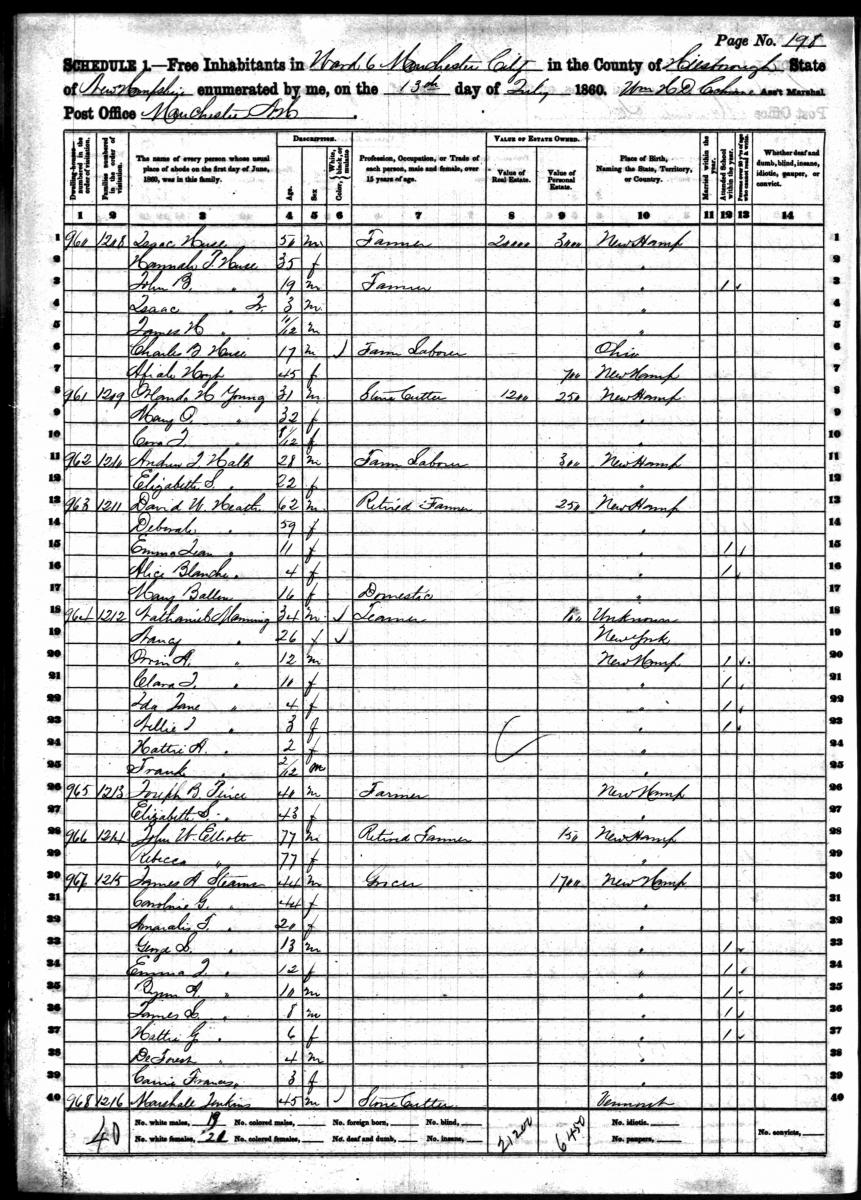 Page No. 198
SCHEDULE 1.—Free Inhabitants in Ward 6 Manchester City in the County of Hillsborough State
of New Hampshire enumerated by me, on the 13th day of July 1860. Wm H D Ass't Marshal
Post Office Manchester NH
Dwelling-houses—numbered in the order of visitation. Families numbered in the order of visitation. The name of every person whose usual place of abode on the first day of June, 1860, was in this family. DESCRIPTION. Age. Sex Color, White, black, or mulatto Profession, Occupation, or Trade of each person, male and female, over 15 years of age. VALUE OF ESTATE OWNED. Value of Real Estate. Value of Personal Estate. Place of Birth, Naming the State, Territory, or Country. Married within the year. Attended School within the year. Persons over 20 y'rs of age who cannot read & write. Whether deaf and dumb, blind, insane, idiotic, pauper, or convict.
1 2 3 4 5 6 7 8 9 10 11 12 13 14
1 960 1208 Isaac Huse 50 m Farmer 20000 3000 New Hamp 1
2 Hannah T. Huse 35 f " 2
3 John B. " 19 m Farmer " 1 3
4 Isaac " Jr. 3 m " 4
5 James H " 11/12 m " 5
6 Charles B Huse 17 m Farm Laborer Ohio 6
7 Hoyt 45 f 700 New Hamp 7
8 961 1209 Orlando H Young 31 m Stone Cutter 1200 250 New Hamp 8
9 Mary O. " 32 f " 9
10 Cora J. /12 f " 10
11 962 1210 Andrew J Hall 28 m Farm Laborer 300 New Hamp 11
12 Elizabeth S. " 22 f " 12
13 963 1211 David W. Heath 62 m Retired Farmer 250 New Hamp 13
14 Deborah " 59 f " 14
15 Emma Jean " 11 f " 1 15
16 Alice Blanche " 4 f " 1 16
17 Mary 16 f Domestic " 17
18 964 1212 Nathaniel Manning 34 m Teamer 100 Unknown 18
19 Nancy " 26 f New York 19
20 Orrin A. " 12 m New Hamp 1 20
21 Clara J. " 10 f " 1 21
22 Ida Jane " 4 f " 1 22
23 Nellie J " 3 f " 1 23
24 Hattie A. " 2 f " 24
25 Frank " 2/12 m " 25
26 965 1213 Joseph B. 40 m Farmer New Hamp 26
27 Elizabeth S. " 43 f " 27
28 966 1214 John W. Elliott 77 m Retired Farmer 150 New Hamp 28
29 Rebecca " 77 f " 29
30 967 1215 James A Stearns 44 m Grocer 1700 New Hamp 30
31 Caroline G. " 44 f " 31
32 F. " 20 f " 32
33 George S. " 13 m " 1 33
34 Emma J. " 12 f " 1 34
35 A. " 10 m " 1 35
36 James S. " 8 m " 1 36
37 Hattie G. " 6 f " 1 37
38 DeForest " 4 m " 38
39 Carrie Frances " 3 f " 39
40 968 1216 Marshall Jenkins 45 m Stone Cutter Vermont 40
40 No. white males, 19 No. colored males, No. foreign born, No. blind, 21200 6450 No. idiotic,
No. white females, No. colored females, No. deaf and dumb, No. insane, No. paupers, No. convicts,